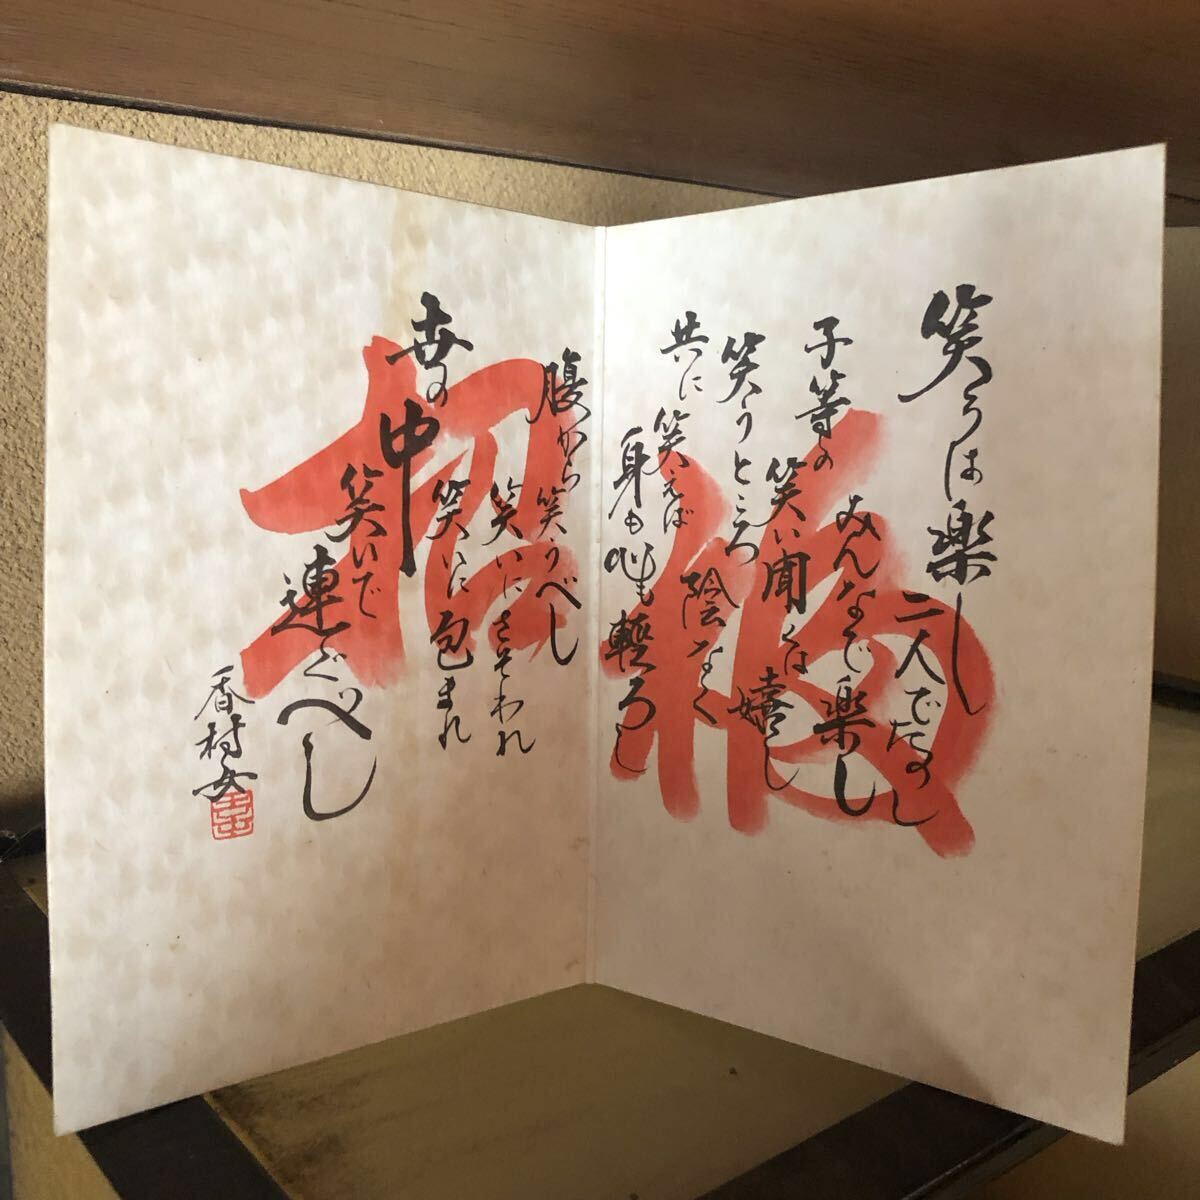 笑うは楽し
二人でたのし
みんなで楽し
子等の笑い聞くは嬉し
笑うところ陰なく
共に笑えば
身も心も軽ろし
腹から笑うべし
笑いにさそわれ
笑いに包まれ
世の中
笑いで
連ぐべし
香村女
福
招